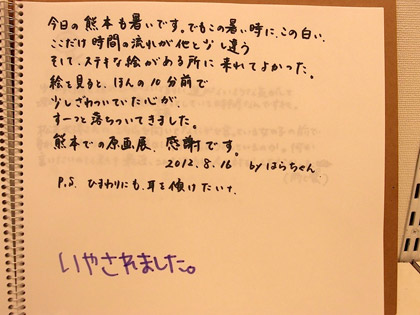 今日の熊本も暑いです。でもこの暑い時に、この白い、
ここだけ時間の流れが他と少し違う
そして、ステキな絵がある所に来れてよかった。
絵を見ると、ほんの10分前で
少しざわついていた心が、
すーっと落ちついてきました。
熊本での原画展、感謝です。
2012.8.16 by はらちゃん
P.S. ひまわりにも、耳を傾けたいで、
いやされました。